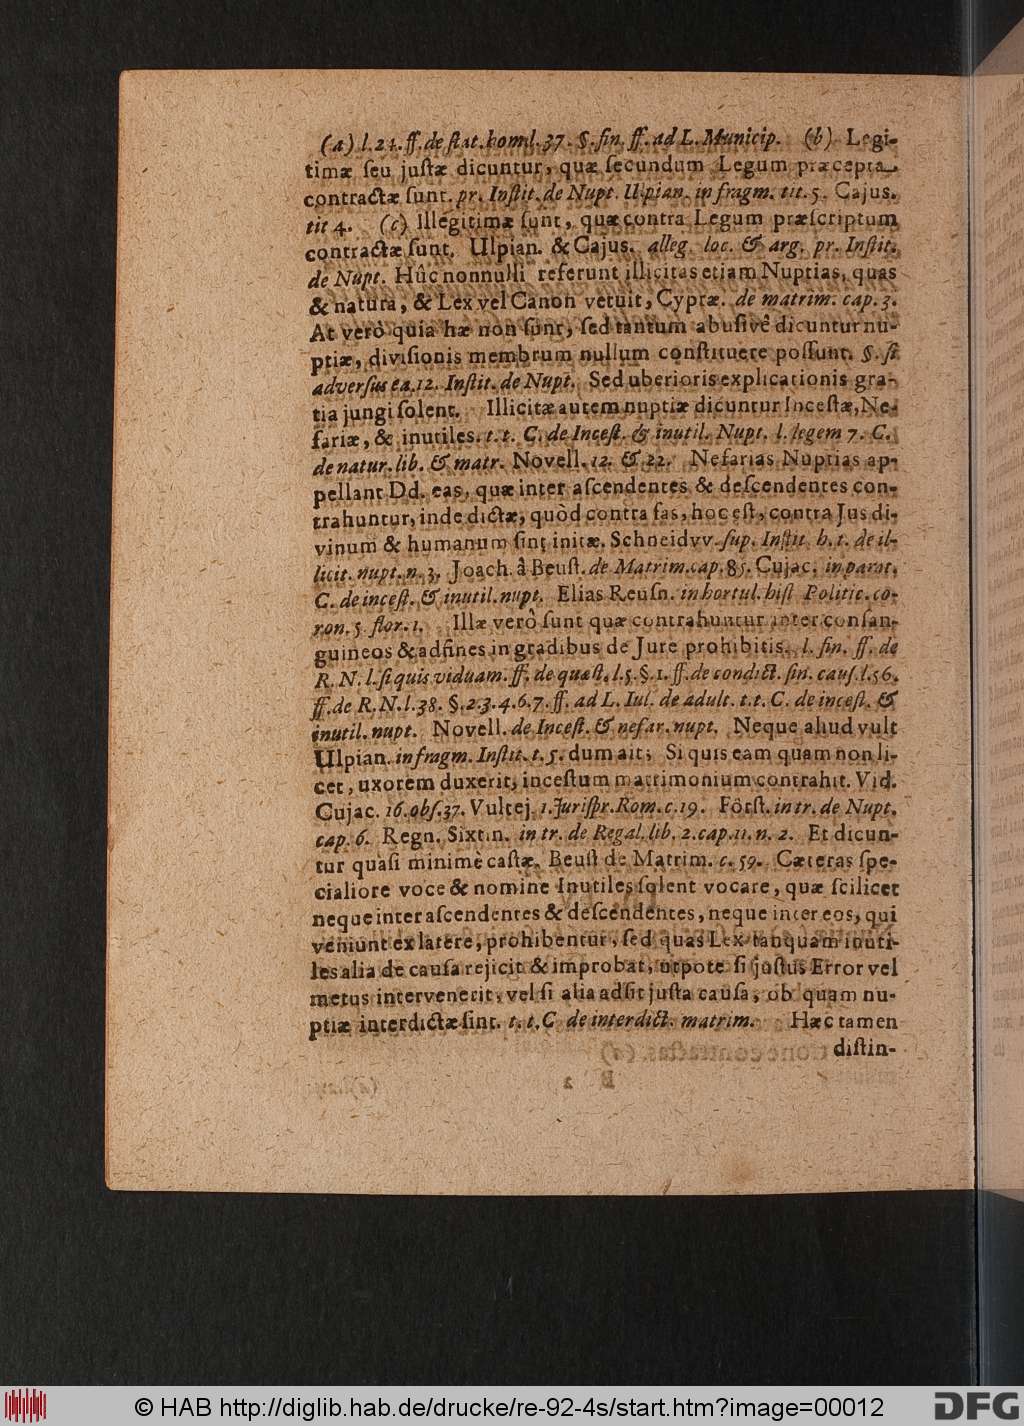 (a) l. 21. ff. de stat. hom. l. 37. §. fin. ff. ad L. Municip. (b) Legi-
timæ seu justæ dicuntur, quæ secundum Legum præcepta
contractæ sunt. pr. Instit. de Nupt. Ulpian. in fragm. tit. 5. Cajus.
tit 4. (c) Illegitimæ sunt, quæ contra Legum præscriptum
contractæ sunt. Ulpian. & Cajus. alleg. loc. & arg. pr. Instit.
de Nupt. Hûc nonnulli referunt illicitas etiam Nuptias, quas
& natura, & Lex vel Canon vetuit, Cypræ. de matrim. cap. 3.
At verò quia hæ non sunt, sed tantum abusivè dicuntur nu-
ptiæ, divisionis membrum nullum constituere possunt. §. si
adversus ea. 12. Instit. de Nupt. Sed uberioris explicationis gra-
tia jungi solent. Illicitæ autem nuptiæ dicuntur Incestæ, Ne-
fariæ, & inutiles. t. t. C. de Incest. & inutil. Nupt. l. legem 7. C.
de natur. lib. & matr. Novell. 12. & 22. Nefarias Nuptias ap-
pellant Dd. eas, quæ inter ascendentes & descendentes con-
trahuntur, inde dictæ, quòd contra fas, hoc est, contra Jus di-
vinum & humanum sint initæ. Schneidvv. sup. Instit. h. t. de il-
licit. nupt. n. 3. Joach. â Beust. de Matrim. cap. 85. Cujac. in parat.
C. de incest. & inutil. nupt. Elias Reusn. in hortul. hist Politic. co-
ron. 5. flor. 1. Illæ verò sunt quæ contrahuntur inter consan-
guineos & adfines in gradibus de Jure prohibitis. l. fin. ff. de
R. N. l. si quis viduam. ff. de quæst. l. 5. §. 1. ff. de condict. sin. caus. l. 56.
ff. de R. N. l. 38. §. 2. 3. 4. 6. 7. ff. ad L. Iul. de adult. t. t. C. de incest. &
inutil. nupt. Novell. de Incest. & nefar. nupt. Neque aliud vult
Ulpian. in fragm. Instit. t. 5. dum ait; Si quis eam quam non li-
cet, uxorem duxerit, incestum matrimonium contrahit. Vid.
Cujac. 16. obs. 37. Vultej. 1. Jurispr. Rom. c. 19. Först. in tr. de Nupt.
cap. 6. Regn. Sixtin. in tr. de Regal. lib. 2. cap. 11. n. 2. Et dicun-
tur quasi minimè castæ. Beust de Matrim. c. 59. Cæteras spe-
cialiore voce & nomine Inutiles solent vocare, quæ scilicet
neque inter ascendentes & descendentes, neque inter eos, qui
veniunt ex latere, prohibentur, sed quas Lex tanquam inuti-
les alia de causa rejicit & improbat, utpote si justus Error vel
metus intervenerit, vel si alia adsit justa causa, ob quam nu-
ptiæ interdictæ sint. t. t. C de interdict. matrim. Hæc tamen
distin-
© HAB http://diglib.hab.de/drucke/re-92-4s/start.htm?image=00012
DFG